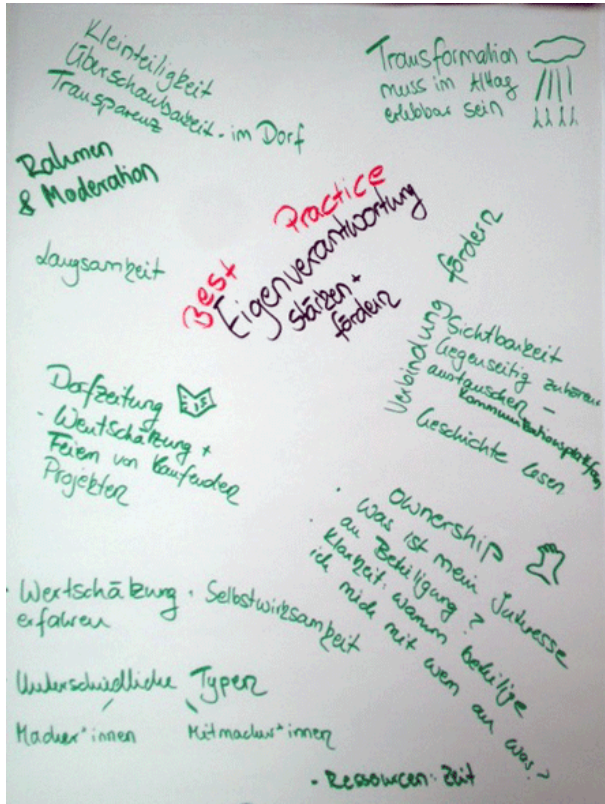 Kleinteiligkeit
Überschaubarkeit - im Dorf
Transparenz
Transformation
muss im Alltag
erlebbar sein
Rahmen
& Moderation
Best Practice
Eigenverantwortung
stärken +
fördern
Langsamkeit
Verbindung fördern
Sichtbarkeit
Gegenseitig zuhören
austauschen –
Kommunikationsplattform
Geschichte lesen
Dorfzeitung
- Wertschätzung +
Feiern von laufenden
Projekten
Ownership
· Was ist mein Interesse
an Beteiligung?
· Klarheit: warum beteilige
ich mich mit wem an was?
· Wertschätzung
erfahren
· Selbstwirksamkeit
Unterschiedliche Typen
Macher*innen
Mitmacher*innen
- Ressourcen: Zeit